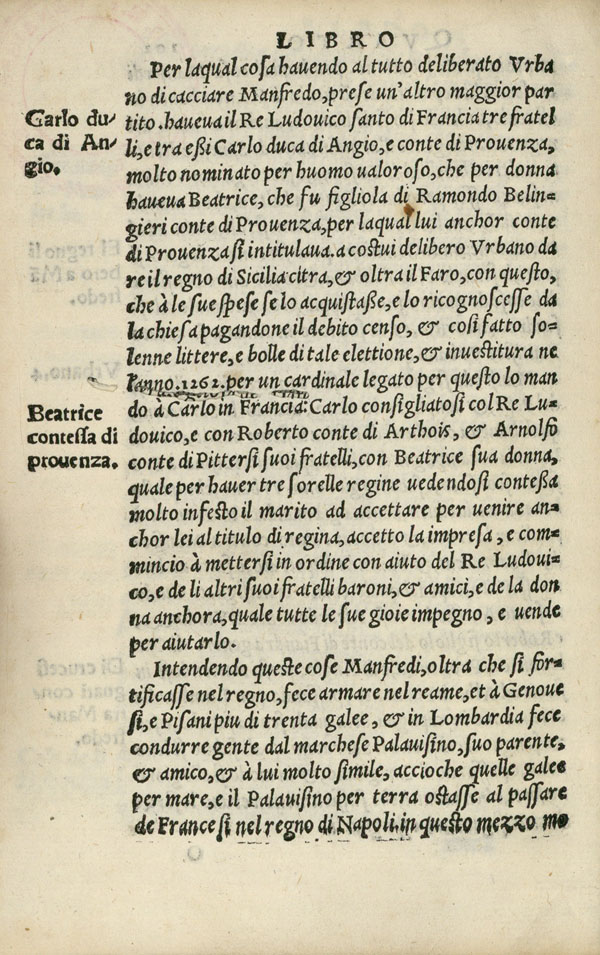 LIBRO
Per laqual cosa havendo al tutto deliberato Vrba
no di cacciare Manfredo, prese un'altro maggior par
tito. haveva il Re Ludovico santo di Francia tre fratel
li, e tra eßi Carlo duca di Angio, e conte di Prouenza,
molto nominato per huomo valoroso, che per donna
haveva Beatrice, che fu figliola di Ramondo Belin-
gieri conte di Prouenza, per laqual lui anchor conte
di Prouenza si intitulava. a costui delibero Vrbano da
re il regno di Sicilia citra, & oltra il Faro, con questo,
che à le sue spese se lo acquistaße, e lo ricognoscesse da
la chiesa pagandone il debito censo, & così fatto so-
lenne littere, e bolle di tale elettione, & inuestitura ne
l'anno. 1262. per un cardinale legato per questo lo man
dò à Carlo in Francia: Carlo consigliatosi col Re Lu-
douico, e con Roberto conte di Arthois, & Arnolfo
conte di Pittersi suoi fratelli, con Beatrice sua donna,
quale per hauer tre sorelle regine uedendosi conteßa
molto infesto il marito ad accettare per venire an-
chor lei al titulo di regina, accetto la impresa, e com-
mincio à mettersi in ordine con aiuto del Re Ludoui-
co, e de li altri suoi fratelli baroni, & amici, e de la don
na anchora, quale tutte le sue gioie impegno, e uende
per aiutarlo.
Intendendo queste cose Manfredi, oltra che si for-
tificasse nel regno, fece armare nel reame, et à Genoue
si, e Pisani piu di trenta galee, & in Lombardia fece
condurre gente dal marchese Palauisino, suo parente,
& amico, & à lui molto simile, accioche quelle galee
per mare, e il Palauisino per terra ostasse al passare
de Francesi nel regno di Napoli. in questo mezzo mo
Carlo du-
ca di An-
gio.
Beatrice
contessa di
prouenza.